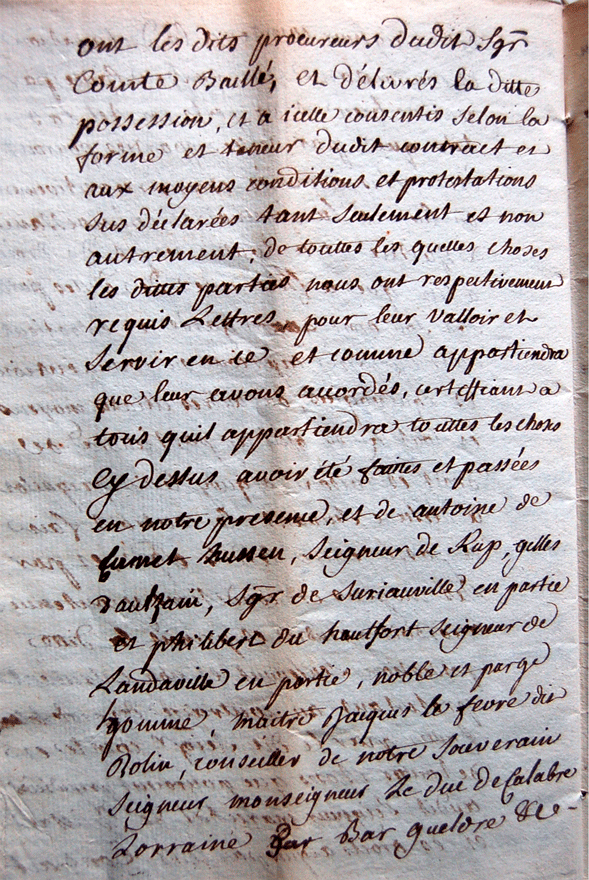 ont les dits procureurs dudit Sgr
Comte Baillé, et délivrés la ditte
possession, et a icelle consentis selon la
forme et teneur dudit contract et
aux moyens conditions et protestations
sus déclarées tant seulement et non
autrement, de touttes les quelles choses
les dittes parties nous ont respectivement
requis Lettres pour leur valloir et
servir en ce et comme appartiendra
que leur avons accordés, certiffiant a
tous quil appartiendra touttes les choses
Cy dessus avoir été faittes et passées
en notre presence, et de antoine de
seigneur de Rup, gilles
Sgr de Suriauville en partie
et philibert du hautfort seigneur de
Landaville en partie, noble et
homme, maitre Jacques le fevre dit
Bolin, conseiller de notre souverain
seigneur monseigneur Le duc de Calabre
Lorraine Bar gueldre &c